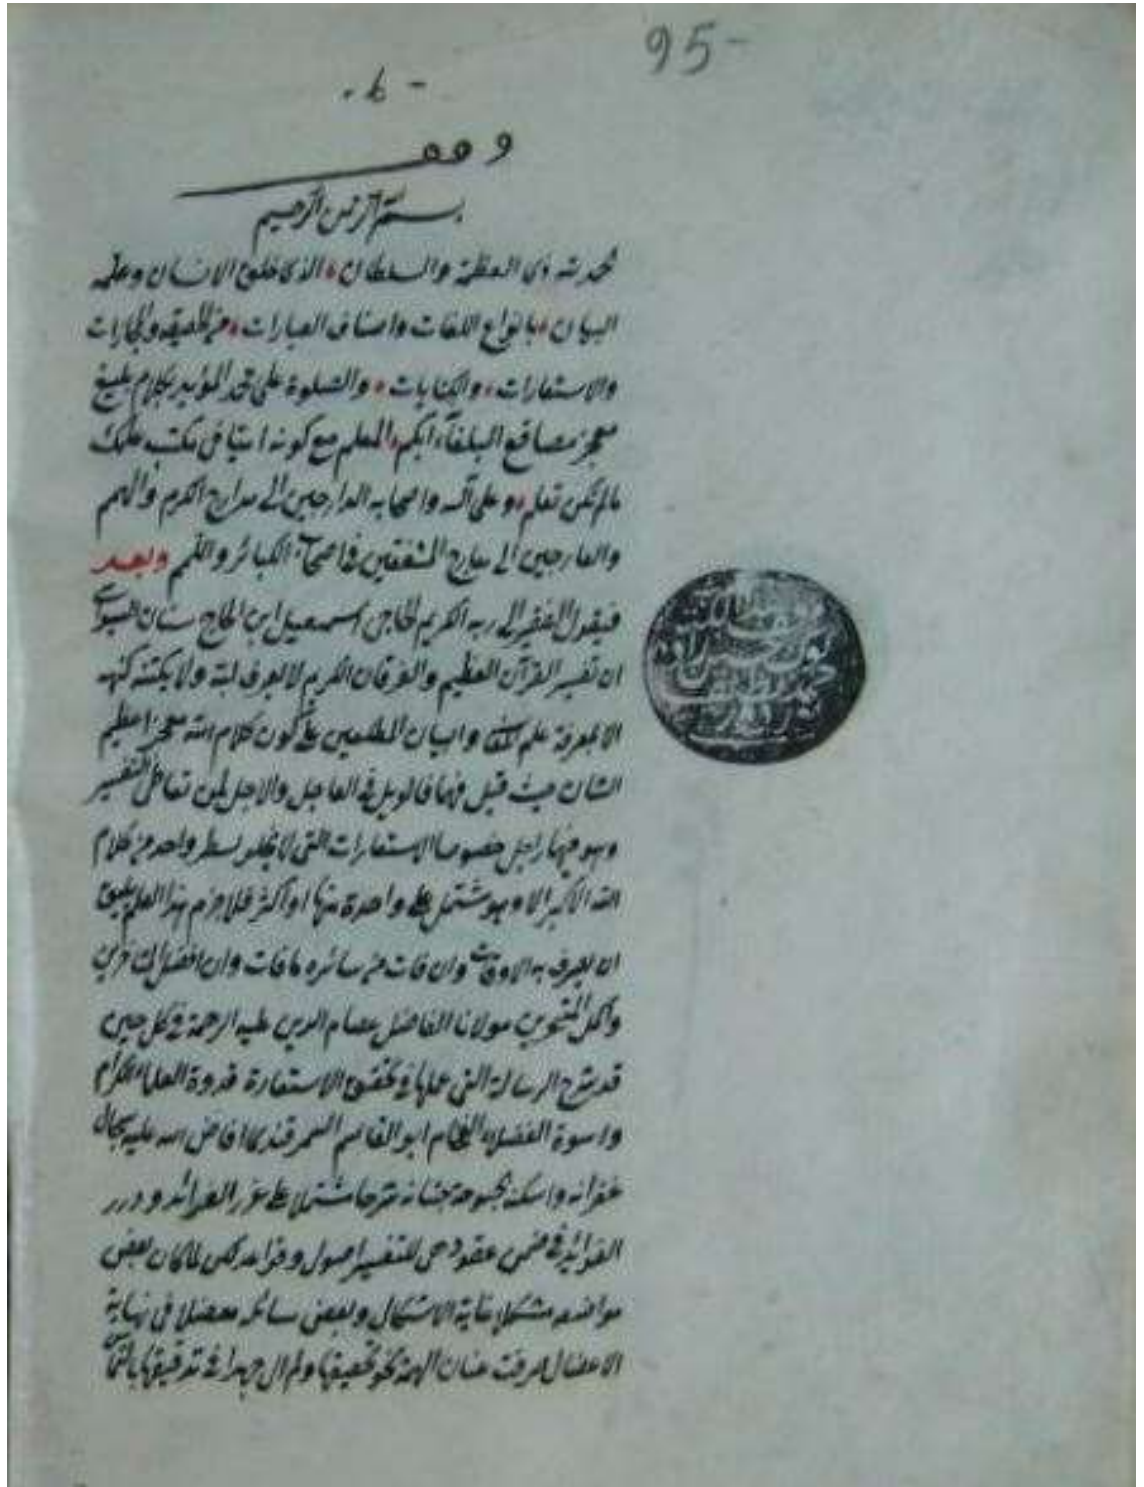 95-
وقف
بسم الله الرحمن الرحيم
نحمد لله ذى العظمة والسلطان الذى خلق الانسان وعلمه
البيان بانواع اللغات واصناف العبارات من الحقيقة والمجازات
والاستعارات والكنايات والصلوة على محمد المؤيد بكلام بليغ
معجز مصاقع البلغاء ابكم المعلم مع كونه اميا فى مكتب علمك
مالم تكن تعلم وعلى آله واصحابه الدارجين الى مدارج الكرم والهمم
والعارجين الى معارج المشفقين فى اصحاب الكبائر واللمم وبعد
فيقول الفقير الى ربه الكريم الحاجى اسمعيل ابن الحاج سنان
ان تفسير القرآن العظيم والفرقان الكريم لا يعرف لبه ولا يكتنه كنهه
الا بمعرفة علم المعانى والبيان المطلعين على كون كلام الله معجزا عظيم
الشان حيث قيل فيهما فالويل فى العاجل والاجل لمن تعاطى التفسير
وهو فيهما راجل خصوصا الاستعارات التى لا يخلو سطر واحد من كلام
الله الاكبر الا وهو مشتمل على واحدة منها او اكثر فلا جرم هذا العلم يليق
ان يصرف به الاوقات وان فات من سائره ما فات وان افضل المتأخرين
واكمل المتبحرين مولانا الفاضل عصام الدين عليه الرحمة فى كل حين
قد شرح الرسالة التى عملها فى تحقيق الاستعارة قدوة العلماء الكرام
واسوة الفضلاء الفخام ابو القاسم السمرقندى افاض الله عليه سجال
غفرانه واسكنه بحبوحة جنانه شرحا مشتملا على غرر الفرائد ودرر
الفوائد فى ضمن عقود هى للتفسير اصول وقواعد لكن لما كان بعض
مواضعه مشكلا غاية الاشكال وبعض سائره معضلا فى نهاية
الاعضال صرفت عنان الهمة نحو تحقيقها ولم ال جهدا فى تدقيقها بالتماس